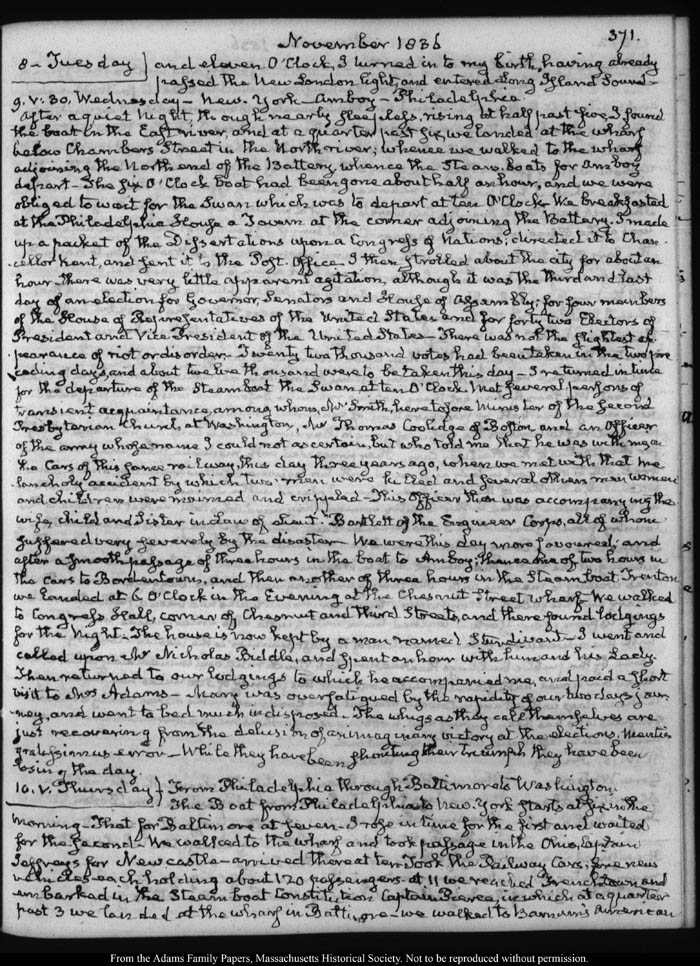 November 1836
371.
8 - Tuesday } and eleven O'Clock, I turned in to my birth, having already
passed the New London light, and entered Long Island Sound -
9. V: 30. Wednesday - New-York - Amboy - Philadelphia
After a quiet Night, though nearly sleepless, rising at half past five I found
the boat in the East river, and at a quarter past six we landed at the wharf
below Chambers Street in the North river; whence we walked to the wharf
adjoining the North end of the Battery, whence the Steam-boats for Amboy
depart - The six O'Clock boat had been gone about half an hour, and we were
obliged to wait for the Swan which was to depart at ten O'Clock. We breakfasted
at the Philadelphia House a Tavern at the corner adjoining the Battery. I made
up a packet of the Dissertations upon a Congress of Nations; directed it to Chan-
cellor Kent, and sent it to the Post-Office. I then strolled about the city for about an
hour - There was very little apparent agitation, although it was the third and last
day of an election for Governor, Senators and House of Assembly; for four members
of the House of Representatives of the United States and for forty two Electors of
President and Vice President of the United States - There was not the slightest ap-
pearance of riot or disorder - Twenty two thousand votes had been taken in the two pre-
ceding days, and about twelve thousand were to be taken this day - I returned in time
for the departure of the Steam boat the Swan, at ten O'Clock. I met several persons of
transient acquaintance, among whom, Mr Smith, heretofore Minister of the Second
Presbyterian Church, at Washington, Mr Thomas Coolidge of Boston, and an Officer
of the army whose name I could not ascertain but who told me that he was with me in
the Cars of this same railway, this day three years ago, when we met with that me-
lancholy accident by which two men were killed and several others men women
and children were maimed and crippled - This Officer then was accompanying the
wife, child and Sister in Law of Lieut. Bartlett of the Engineer Corps, all of whom
suffered very severely by the disaster - We were this day more favoured; and
after a smooth passage of three hours in the boat to Amboy; thence one of two hours in
the cars to Bordentown, and then another of three hours in the Steam boat Trenton
we landed at 6 O'Clock in the Evening at the Chesnut Street wharf. We walked
to Congress Hall, corner of Chesnut and Third Streets, and there found lodgings
for the Night - The house is now kept by a man named Sturdivant - I went and
called upon Mr Nicholas Biddle, and spent an hour with him and his Lady.
Then returned to our lodgings to which he accompanied me, and paid a short
visit to Mrs Adams - Mary was overfatigued by the rapidity of our two days jour-
ney, and went to bed much indisposed - The whigs as they call themselves are
just recovering from the delusion of an imaginary victory at the elections. Mentis
gratissimus error - While they have been shouting their triumph they have been
losing the day.
10. V. Thursday } From Philadelphia through Baltimore to Washington
The Boat from Philadelphia to New York starts at six in the
morning - That for Baltimore at seven - I rose in time for the first and waited
for the second - We walked to the wharf and took passage in the Ohio, Captain
Jeffreys for Newcastle - arrived there at ten. Took the Railway Cars; new
vehicles each holding about 120 passengers. At 11 we reached Frenchtown and
embarked in the Steam boat Constitution Captain Pierce, in which at a quarter
past 3 we landed at the wharf in Baltimore - we walked to Barnum's American
From the Adams Family Papers, Massachusetts Historical Society. Not to be reproduced without permission.